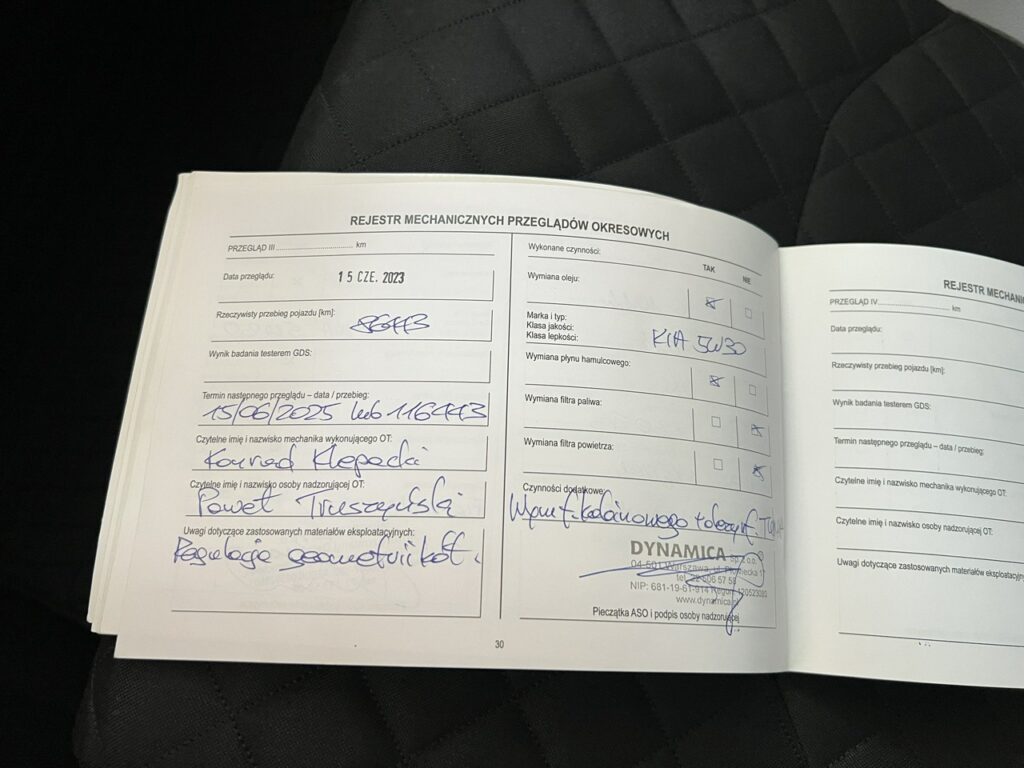 REJESTR MECHANICZNYCH PRZEGLĄDÓW OKRESOWYCH
PRZEGLĄD III .................................. km
Data przeglądu: 15 CZE. 2023
Rzeczywisty przebieg pojazdu [km]: 86443
Wynik badania testerem GDS:
Termin następnego przeglądu – data / przebieg:
15/06/2025 lub 116443
Czytelne imię i nazwisko mechanika wykonującego OT:
Konrad Klepacki
Czytelne imię i nazwisko osoby nadzorującej OT:
Paweł Truszyński
Uwagi dotyczące zastosowanych materiałów eksploatacyjnych:
Regulacja geometrii kół.
Wykonane czynności:
TAK NIE
Wymiana oleju:
Marka i typ:
Klasa jakości:
Klasa lepkości:
KIA 5W30
Wymiana płynu hamulcowego:
Wymiana filtra paliwa:
Wymiana filtra powietrza:
Czynności dodatkowe:
Wym f. kabinowego
DYNAMICA sp. z o.o.
04-501 Warszawa, ul. Płowiecka
NIP: 681-19-61-914 Regon
www.dynamica.pl
Pieczątka ASO i podpis osoby nadzorującej
30
REJESTR
PRZEGLĄD IV .................................. km
Data przeglądu:
Rzeczywisty przebieg pojazdu [km]:
Wynik badania testerem GDS:
Termin następnego przeglądu – data / przebieg:
Czytelne imię i nazwisko mechanika wykonującego OT:
Czytelne imię i nazwisko osoby nadzorującej OT:
Uwagi dotyczące zastosowanych materiałów